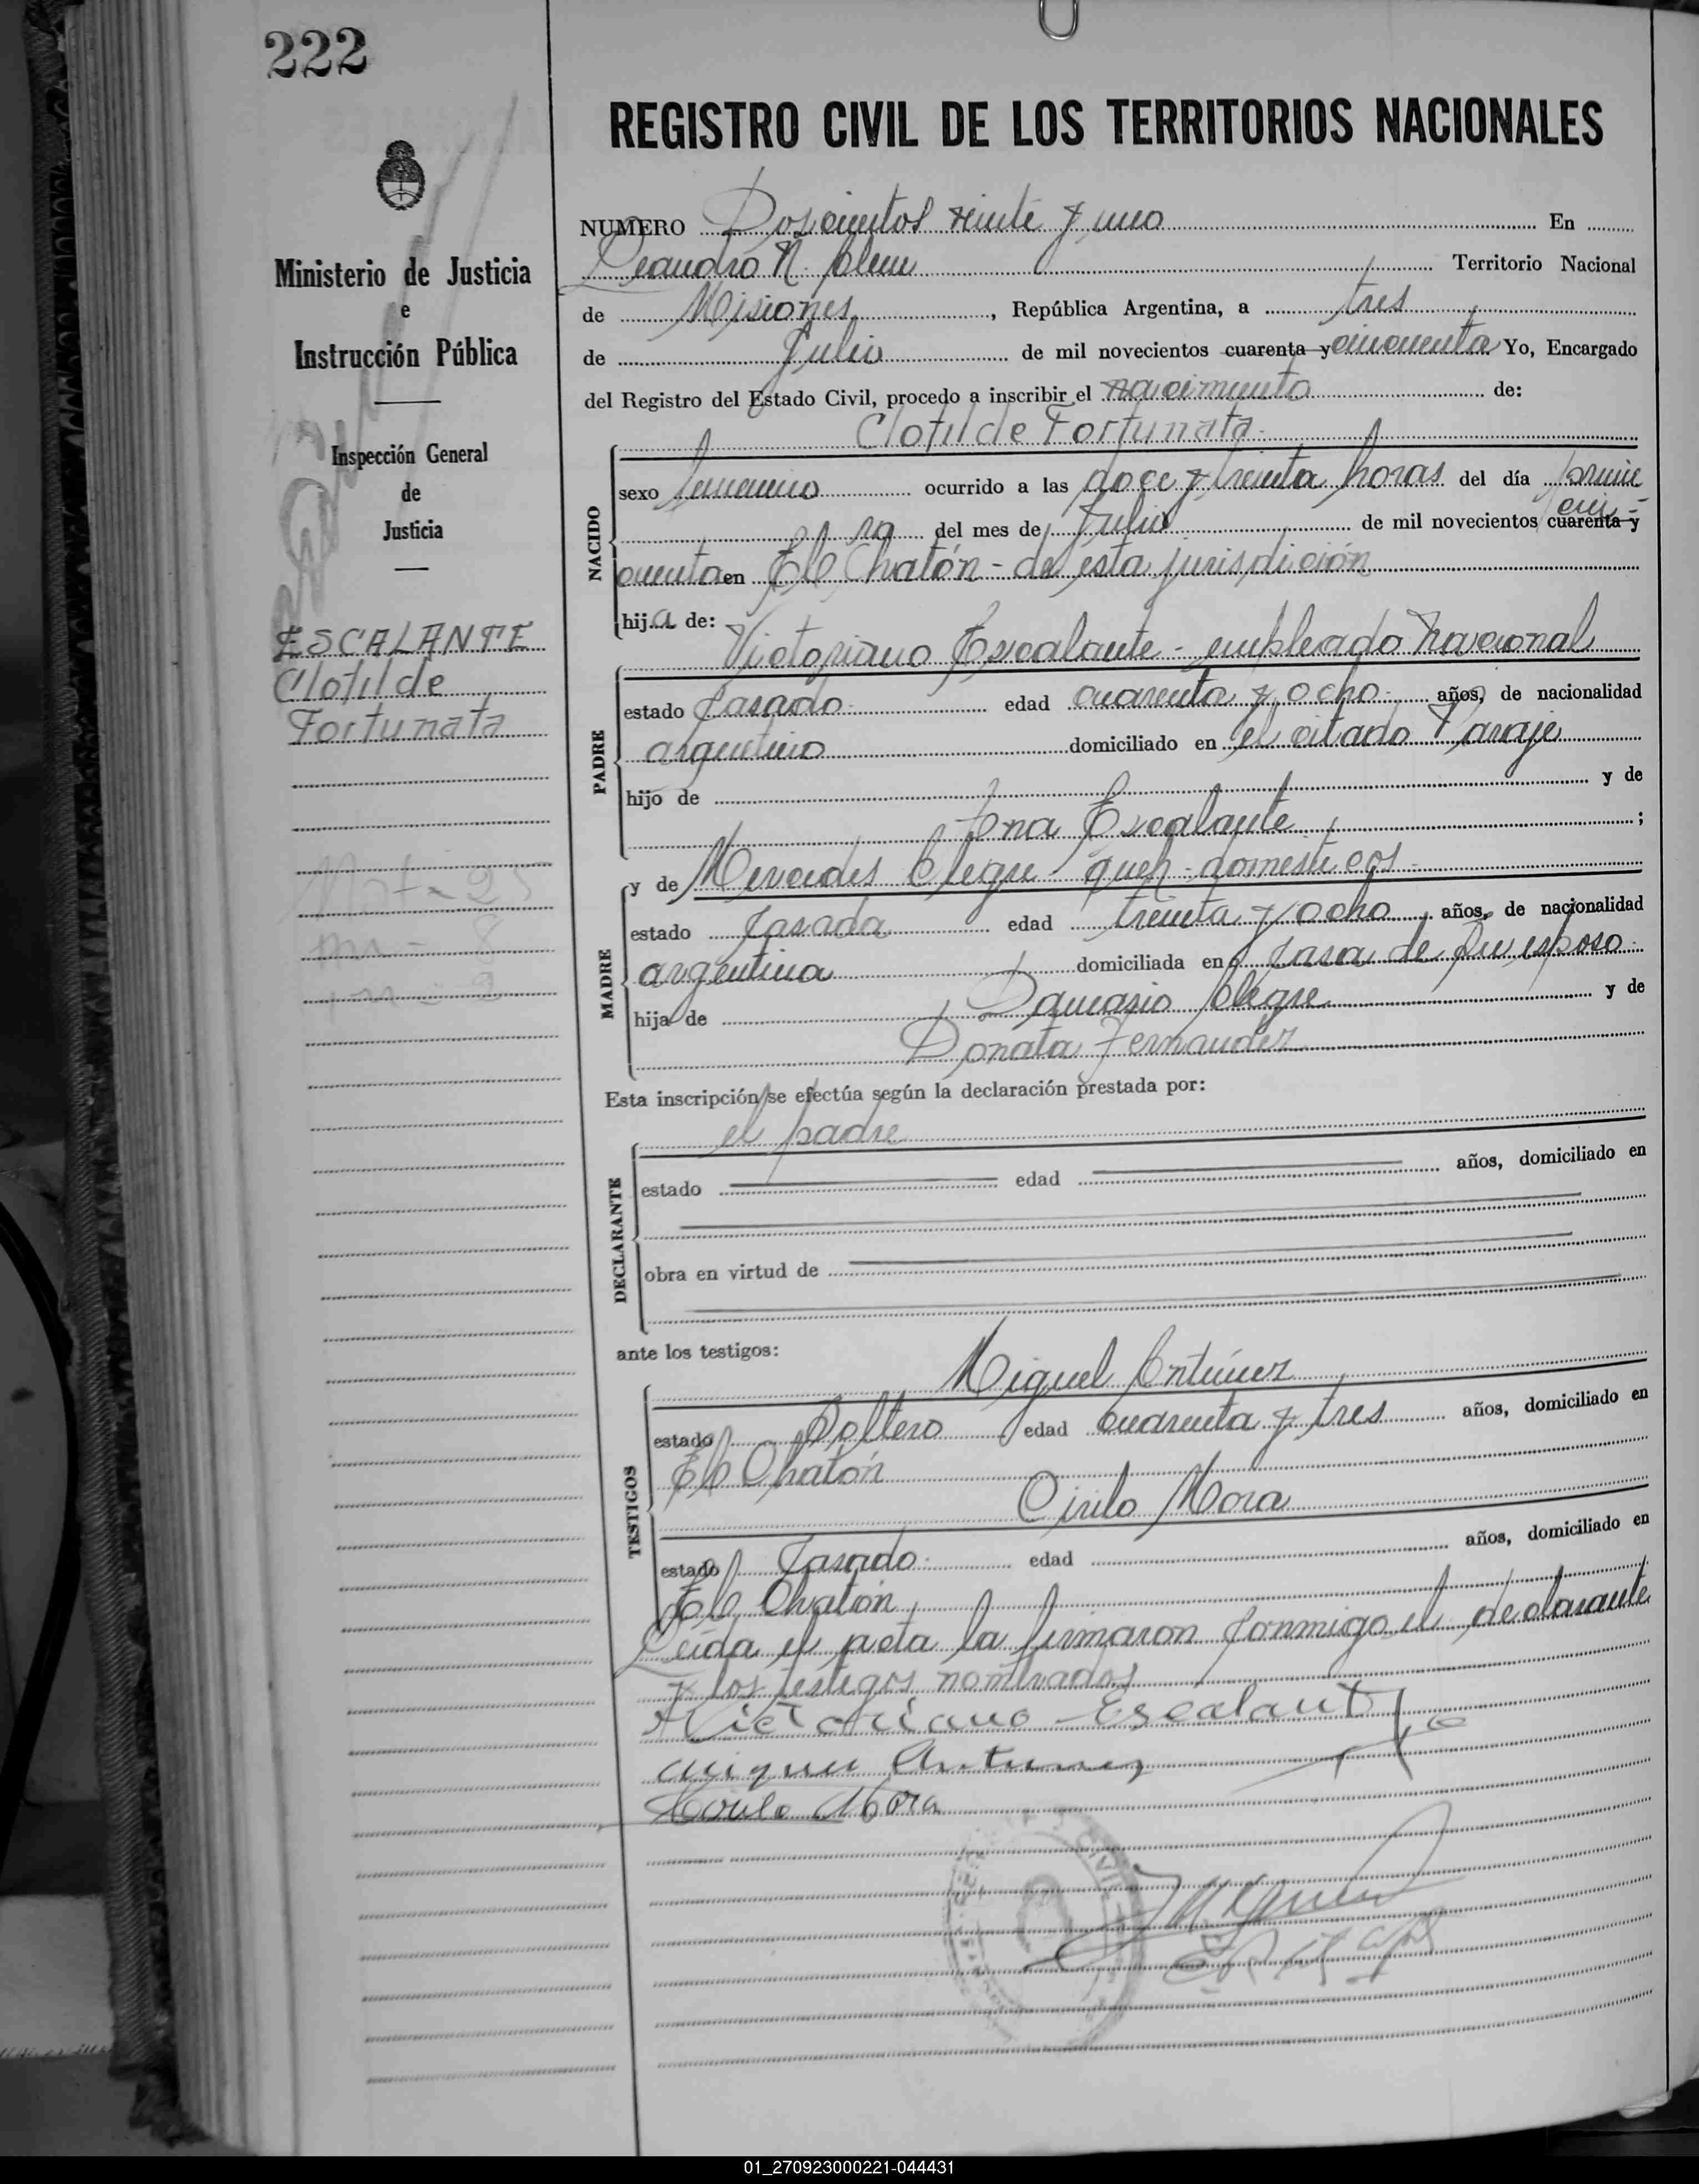 222
Ministerio de Justicia
e
Instrucción Pública
Inspección General
de
Justicia
ESCALANTE
Clotilde
Fortunata
REGISTRO CIVIL DE LOS TERRITORIOS NACIONALES
NUMERO Doscientos veinte y uno En
Leandro N. Alem Territorio Nacional
de Misiones, República Argentina, a tres
de Julio de mil novecientos cuarenta y cincuenta Yo, Encargado
del Registro del Estado Civil, procedo a inscribir el nacimiento de:
Clotilde Fortunata
NACIDO
sexo femenino ocurrido a las doce y treinta horas del día prime
ro del mes de Julio de mil novecientos cuarenta y cin-
cuenta en El Chatón - de esta jurisdición
hija de:
Victoriano Escalante - empleado Nacional
PADRE
estado Casado edad cuarenta y ocho años, de nacionalidad
argentino domiciliado en el citado Paraje
hijo de y de
Ana Escalante ;
y de Mercedes Alegre queh-domesticos
MADRE
estado Casada edad treinta y ocho años, de nacionalidad
argentina domiciliada en casa de su esposo
hija de Damasio Alegre y de
Donata Fernandez
Esta inscripción se efectúa según la declaración prestada por:
el padre
DECLARANTE
estado edad años, domiciliado en
obra en virtud de
ante los testigos:
Miguel Antúnez
TESTIGOS
estado Soltero edad cuarenta y tres años, domiciliado en
El Chatón
Cirilo Mora
estado Casado edad años, domiciliado en
El Chatón
Leída el acta la firmaron conmigo el declarante
y los testigos nombrados
Victoriano Escalante
Miguel Antunez
Mora
01_270923000221-044431